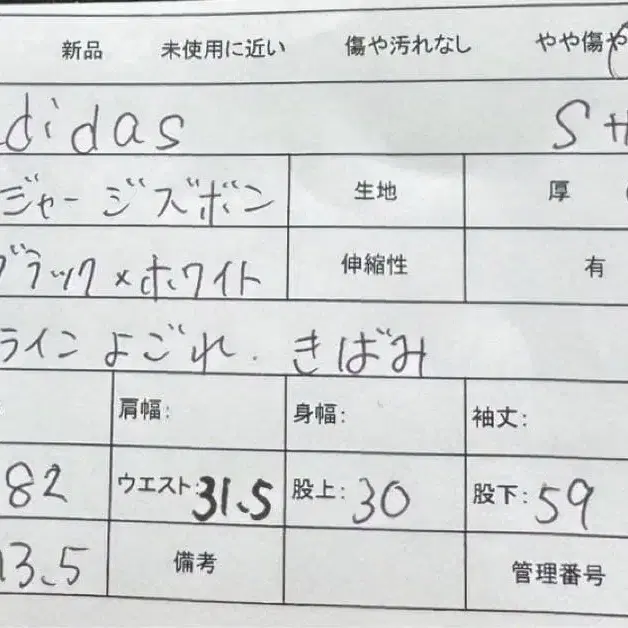 新品 未使用に近い 傷や汚れなし やや傷や
didas S
ジャージズボン 生地 厚
ブラック×ホワイト 伸縮性 有
ライン よごれ. きばみ
肩幅: 身幅: 袖丈:
82 ウエスト: 31.5 股上: 30 股下: 59
3.5 備考 管理番号